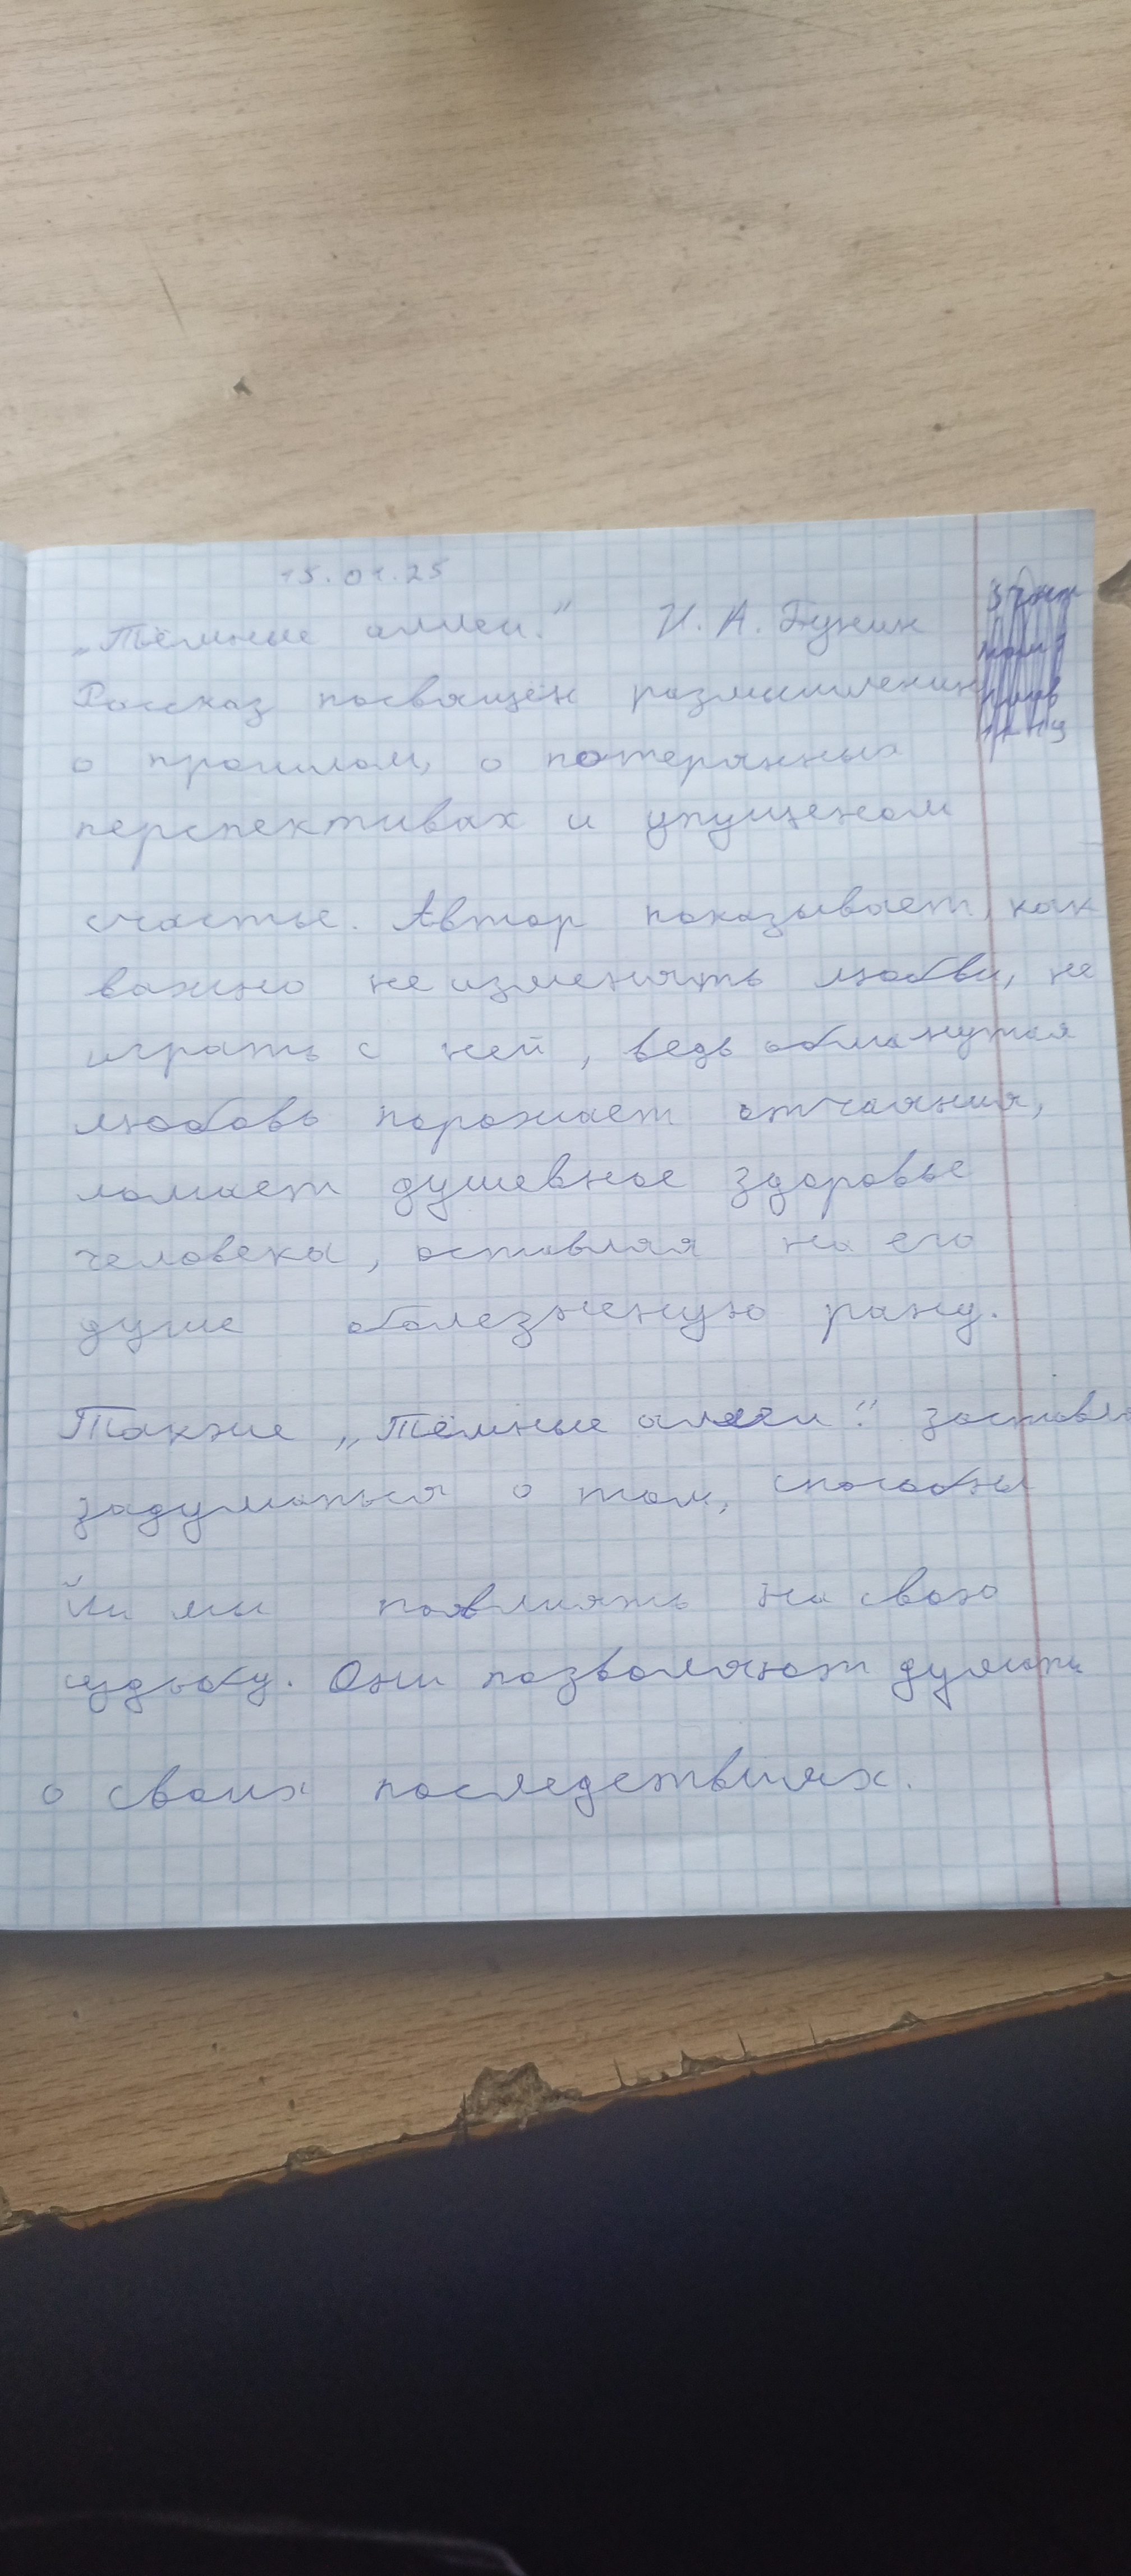 15.01.25
„Тёмные аллеи." И. А. Бунин
Рассказ посвящён размышлению
о прошлом, о потерянных
перспективах и упущеном
счастье. Автор показывает, как
важно не изменять любви, не
играть с ней, ведь обманутая
любовь порожает отчаяния,
ломает душевное здоровье
человека, оставляя на его
душе болезненую рану.
Также „Тёмные аллеи." заставл
задуматься о том, способны
ли мы повлиять на свою
судьбу. Они позволяют думать
о своих последствиях.